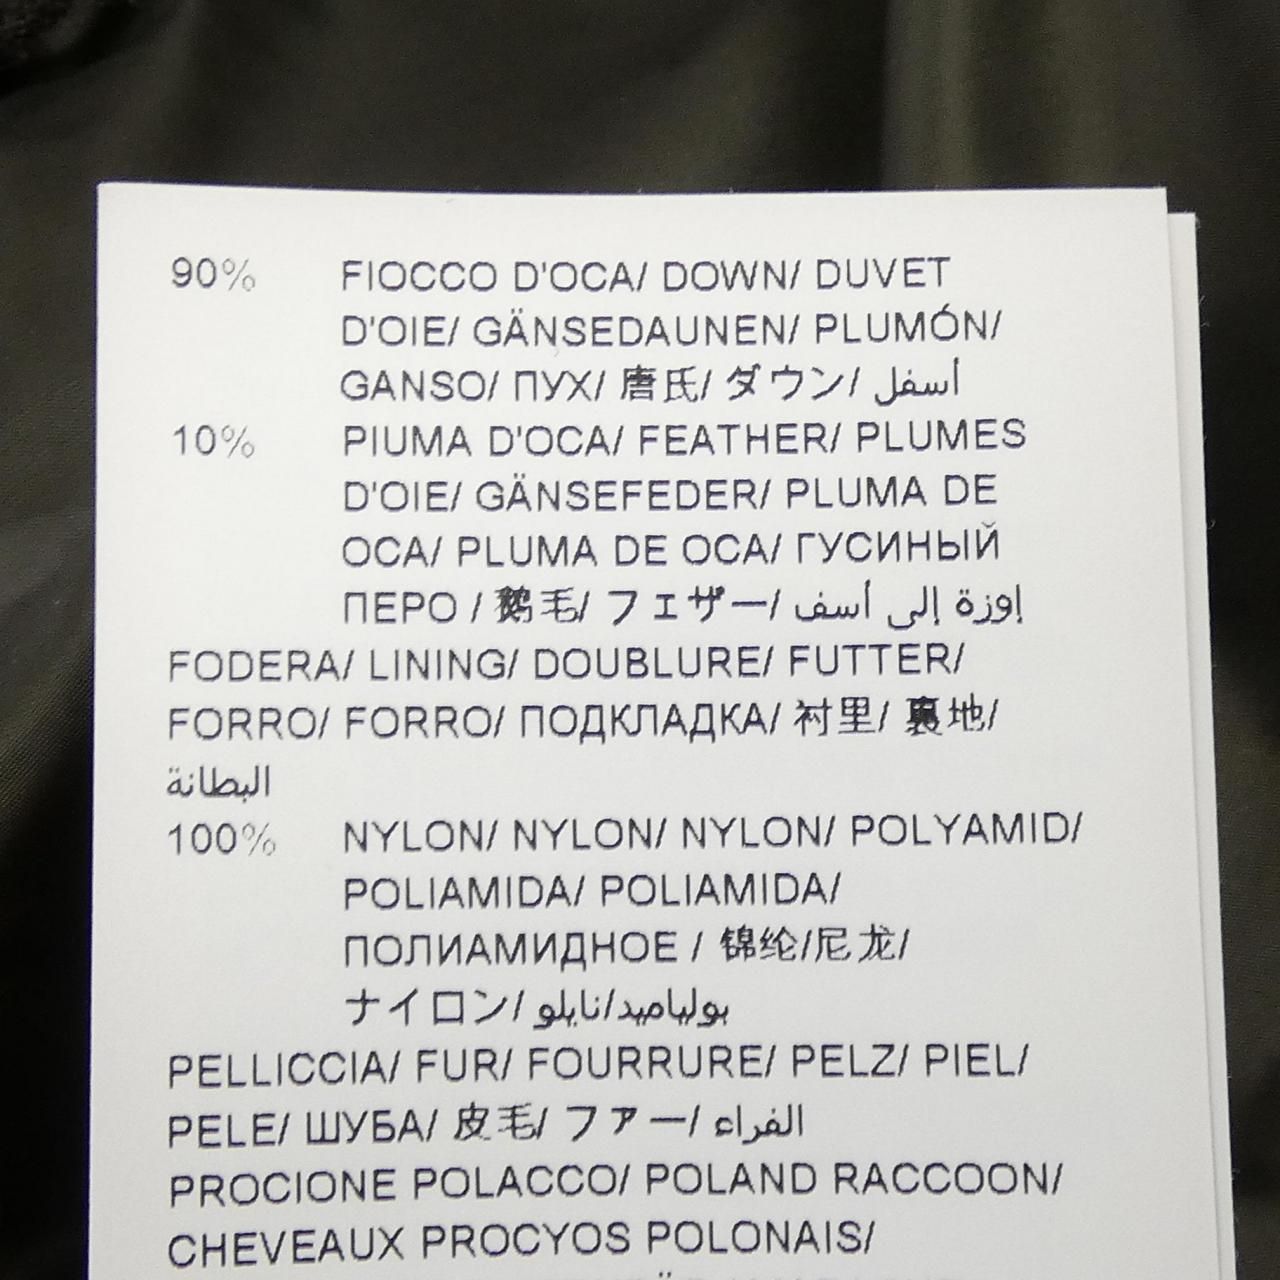 90% FIOCCO D'OCA/ DOWN/ DUVET
D'OIE/ GÄNSEDAUNEN/ PLUMÓN/
GANSO/ ПУХ/ 唐氏/ ダウン/ أسفل
10% PIUMA D'OCA/ FEATHER/ PLUMES
D'OIE/ GÄNSEFEDER/ PLUMA DE
OCA/ PLUMA DE OCA/ ГУСИНЫЙ
ПЕРО / 鹅毛/ フェザー/ إوزة إلى أسف
FODERA/ LINING/ DOUBLURE/ FUTTER/
FORRO/ FORRO/ ПОДКЛАДКА/ 衬里/ 裏地/
البطانة
100% NYLON/ NYLON/ NYLON/ POLYAMID/
POLIAMIDA/ POLIAMIDA/
ПОЛИАМИДНОЕ / 锦纶/尼龙/
ナイロン/ بولياميد/نايلو
PELLICCIA/ FUR/ FOURRURE/ PELZ/ PIEL/
PELE/ ШУБА/ 皮毛/ ファー/ الفراء
PROCIONE POLACCO/ POLAND RACCOON/
CHEVEAUX PROCYOS POLONAIS/